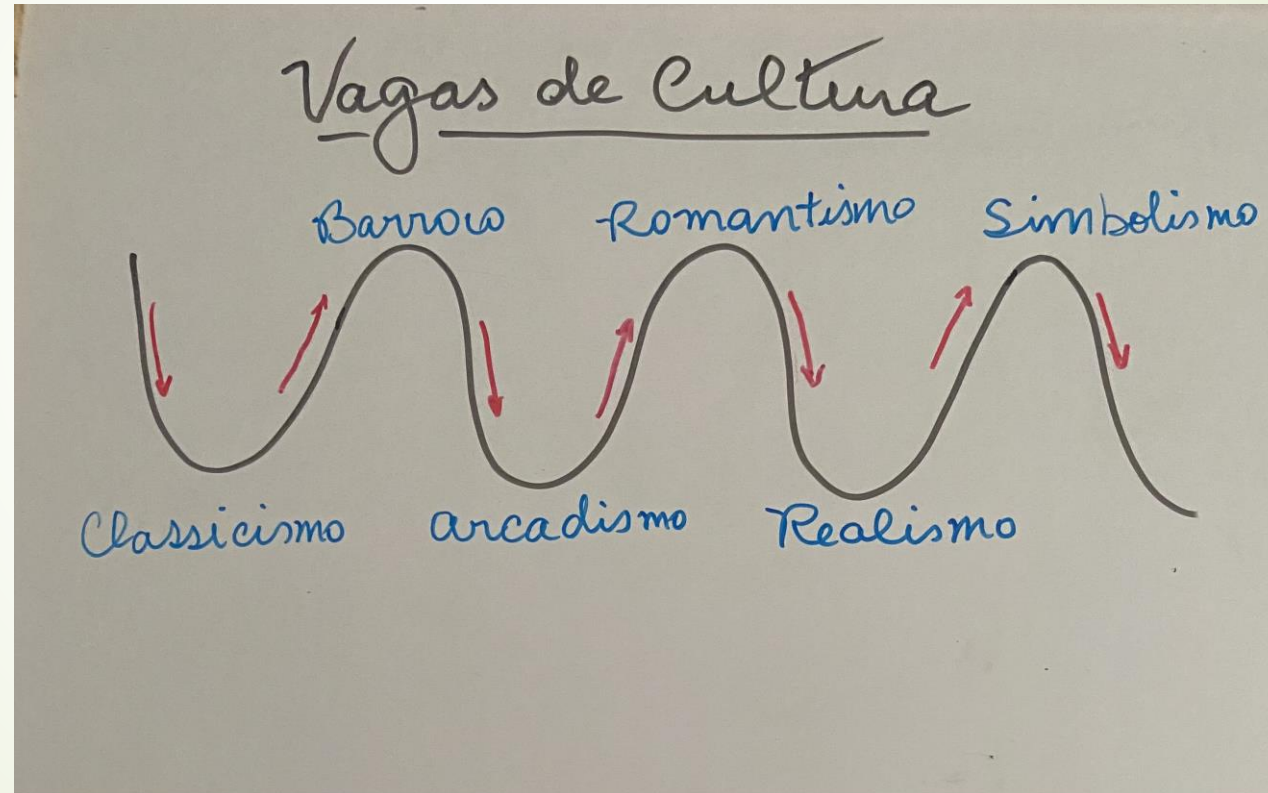 Vagas de Cultura
Barroco Romantismo Simbolismo
Classicismo arcadismo Realismo